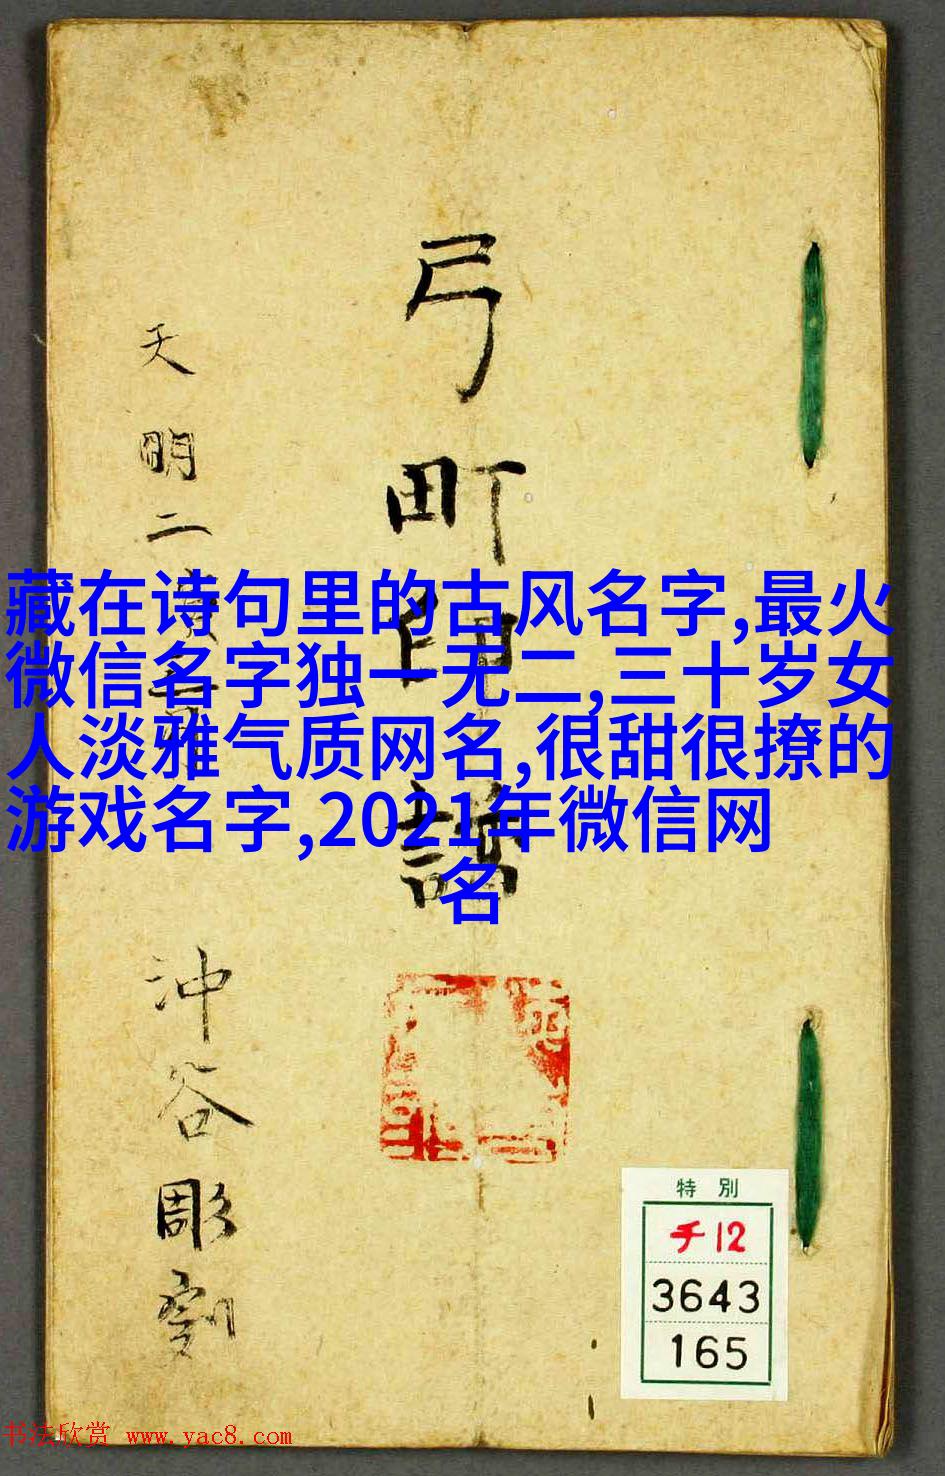 弓町印譜
天明二
沖谷彫刻
藏在诗句里的古风名字,最火
微信名字独一无二,三十岁女
人淡雅气质网名,很甜很撩的
游戏名字,2021年微信网
名
特別
チ12
3643
165
书法欣赏 www.yac8.com